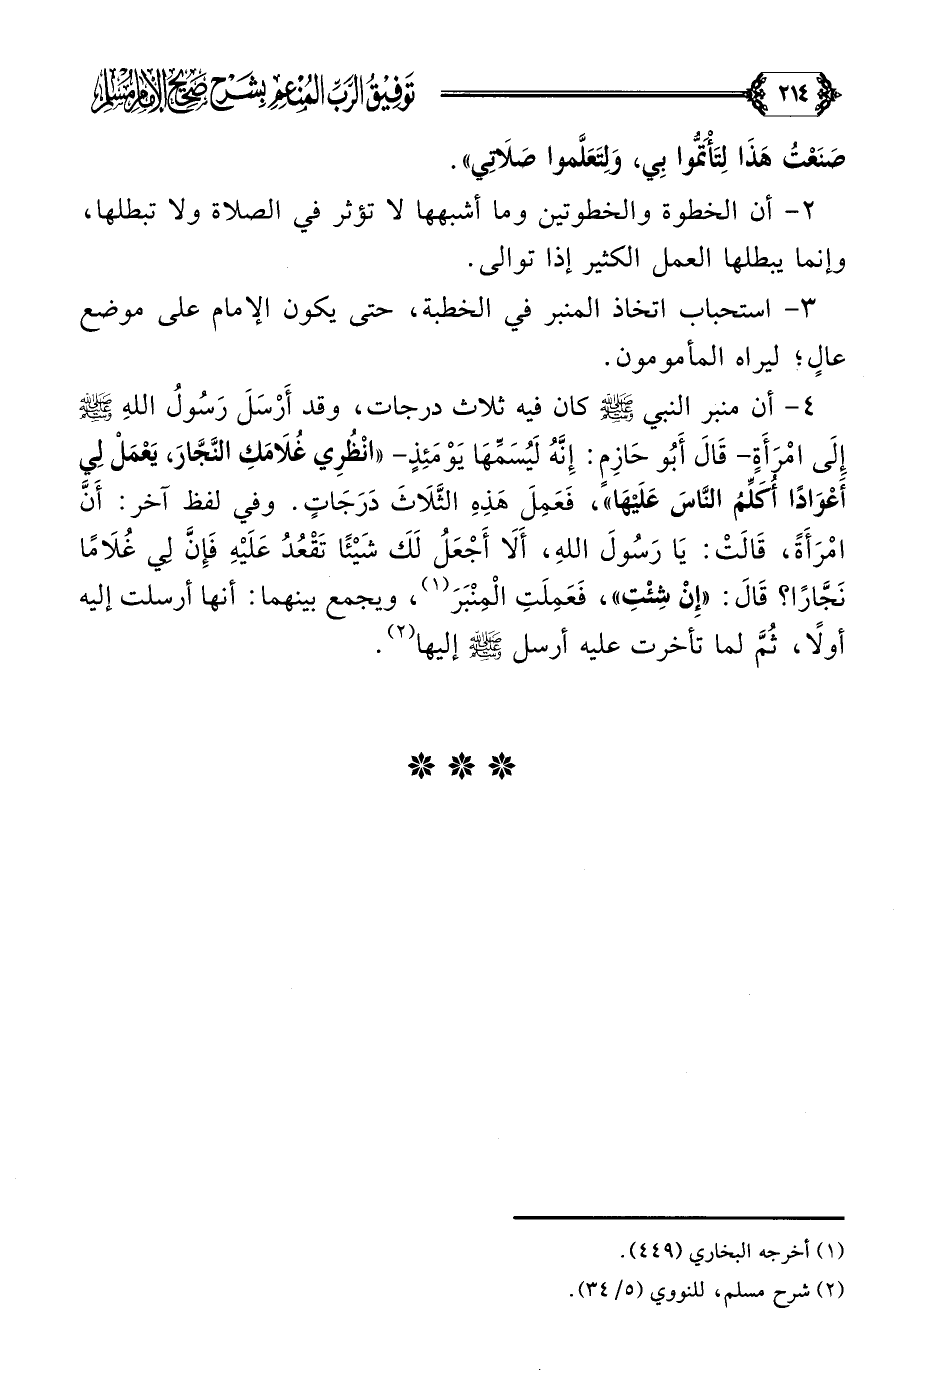 ٢١٤
توفيق الرب المنعم بشرح صحيح الإمام مسلم
صَنَعْتُ هَذَا لِتَأْتَمُّوا بِي، وَلِتَعَلَّموا صَلَاتِي».
٢- أن الخطوة والخطوتين وما أشبهها لا تؤثر في الصلاة ولا تبطلها،
وإنما يبطلها العمل الكثير إذا توالى.
٣- استحباب اتخاذ المنبر في الخطبة، حتى يكون الإمام على موضع
عالٍ؛ ليراه المأمومون.
٤- أن منبر النبي ﷺ كان فيه ثلاث درجات، وقد أَرْسَلَ رَسُولُ اللهِ ﷺ
إِلَى امْرَأَةٍ- قَالَ أَبُو حَازِمٍ: إِنَّهُ لَيُسَمِّهَا يَوْمَئِذٍ- «انْظُرِي غُلَامَكِ النَّجَّارَ، يَعْمَلْ لِي
أَعْوَادًا أُكَلِّمُ النَّاسَ عَلَيْهَا»، فَعَمِلَ هَذِهِ الثَّلَاثَ دَرَجَاتٍ. وفي لفظ آخر: أَنَّ
امْرَأَةً، قَالَتْ: يَا رَسُولَ اللهِ، أَلَا أَجْعَلُ لَكَ شَيْئًا تَقْعُدُ عَلَيْهِ فَإِنَّ لِي غُلَامًا
نَجَّارًا؟ قَالَ: «إِنْ شِئْتِ»، فَعَمِلَتِ الْمِنْبَرَ(١)، ويجمع بينهما: أنها أرسلت إليه
أولًا، ثُمَّ لما تأخرت عليه أرسل ﷺ إليها(٢).
(١) أخرجه البخاري (٤٤٩).
(٢) شرح مسلم، للنووي (٥/ ٣٤).